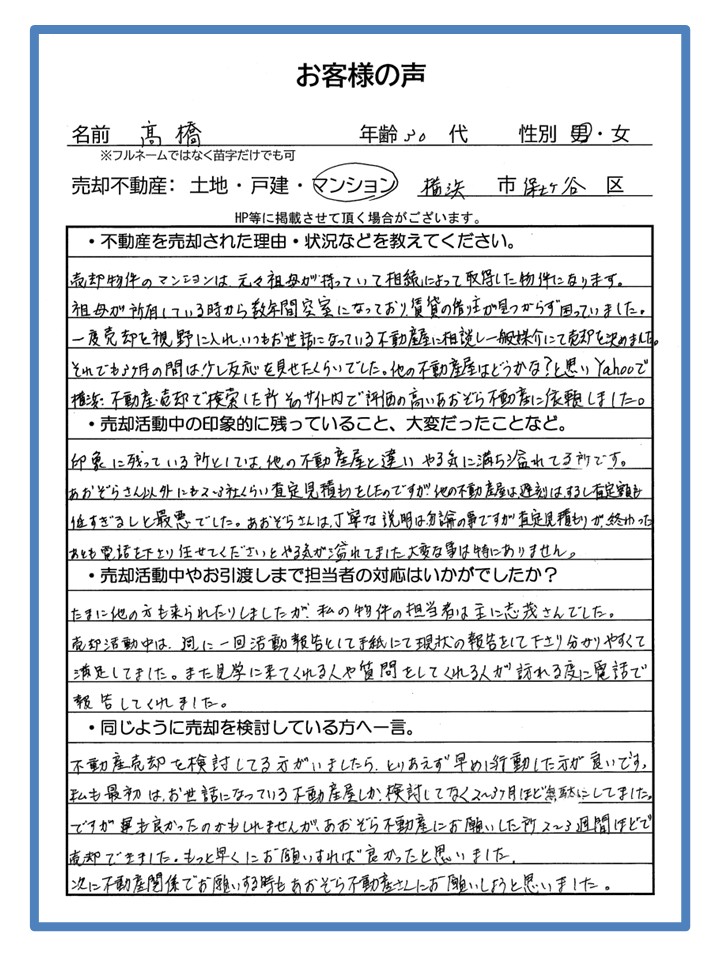 お客様の声
名前 高橋 年齢 30 代 性別 男・女
※フルネームではなく苗字だけでも可
売却不動産： 土地・戸建・マンション 横浜 市 保土ヶ谷 区
HP等に掲載させて頂く場合がございます。
・不動産を売却された理由・状況などを教えてください。
売却物件のマンションは、元々祖母が持っていて相続によって取得した物件になります。
祖母が所有している時から数年間空室になっており賃貸の借主が見つからず困っていました。
一度売却を視野に入れ、いつもお世話になっている不動産屋に相談し一般媒介にて売却を決めました。
それでも3ヶ月の間は、少し反応を見せたくらいでした。他の不動産屋はどうかな？と思いYahooで
横浜 不動産売却で検索した所 そのサイト内で評価の高いあおぞら不動産に依頼しました。
・売却活動中の印象的に残っていること、大変だったことなど。
印象に残っている所としては、他の不動産屋と違い やる気に満ち溢れてる所です。
あおぞらさん以外にも2〜3社くらい査定見積もりをしたのですが、他の不動産屋は遅刻は、するし査定額も
低すぎるしと最悪でした。あおぞらさんは、丁寧な説明は勿論の事ですが査定見積もりが、終わった
あとも電話を下さり任せてくださいとやる気が溢れてました。大変な事は特にありません。
・売却活動中やお引渡しまで担当者の対応はいかがでしたか？
たまに他の方も来られたりしましたが、私の物件の担当者は主に志茂さんでした。
売却活動中は、週に一回活動報告として手紙にて現状の報告をして下さり分かりやすくて
満足してました。また見学に来てくれる人や質問をしてくれる人が訪れる度に電話で
報告してくれました。
・同じように売却を検討している方へ一言。
不動産売却を検討してる方がいましたら、とりあえず早めに行動した方が良いです。
私も最初は、お世話になっている不動産屋しか、検討してなく2〜3ヶ月ほど無駄にしてました。
ですが運も良かったのかもしれませんが、あおぞら不動産にお願いした所2〜3週間ほどで
売却できました。もっと早くにお願いすれば良かったと思いました。
次に不動産関係でお願いする時もあおぞら不動産さんにお願いしようと思いました。